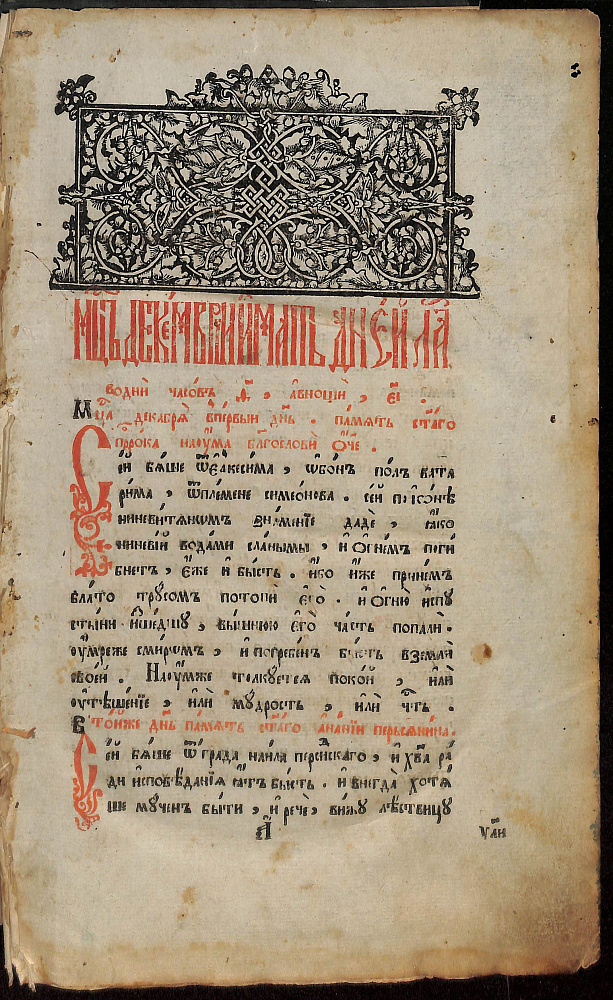 МЦЪ ДЕКЕ́МВРЇЙ И́МАТЬ ДН҃Е́Й Л҃А
водни̑ часо́въ ѳ҃, авнощѝ, є҃і.
Мц҃а декабря̀ впе́рвый дн҃ь. па́мять ст҃а́го
прⷪ҇ро́ка нао́ума бл҃гослови̑ ѻ҆́ч҃е.
Се́й бя́ше ѿ елкесима, ѡ҆бо́нъ по́лъ вата
ри́ма, ѿпле́мене симеѡ́нова. се́й по і҆ѡ́нѣ
ниневитя́нѡмъ зна́менїе даде̑, ꙗ҆́ко
ниневі́й вода́ми сла́ными, и҆ ѻ҆гне́мъ поги́
бнетъ, є҆́же и҆ бы́сть. и҆́бо
зла́то тру́сомъ потопи̑ є҆го̑. и҆ ѻ҆гню̀ и҆спу
сты́ни и҆зше́дшу, вы́шнюю є҆го̑ ча́сть попали̑.
оу҆́мреже сми́ромъ, и҆ погребе́нъ бы́сть в земли̑
свое́й. Нао́умже толку́етсѧ поко́й, и҆лѝ
оу҆тѣше́нїе, и҆лѝ му́дрость, и҆лѝ
Вто́йже дн҃ь па́мять ст҃а́го а҆на́нїи персѧни́на.
Се́й бя́ше ѿ гра́да пе́рсидскаго, и҆ хв҃а ра́
ди и҆сповѣ́данїѧ ꙗ҆́тъ бы́сть. и҆ внегда̀ хотѧ́
ше му́ченъ бы́ти, и҆ рече̑, ви́жу лѣ́ствицу
а҃